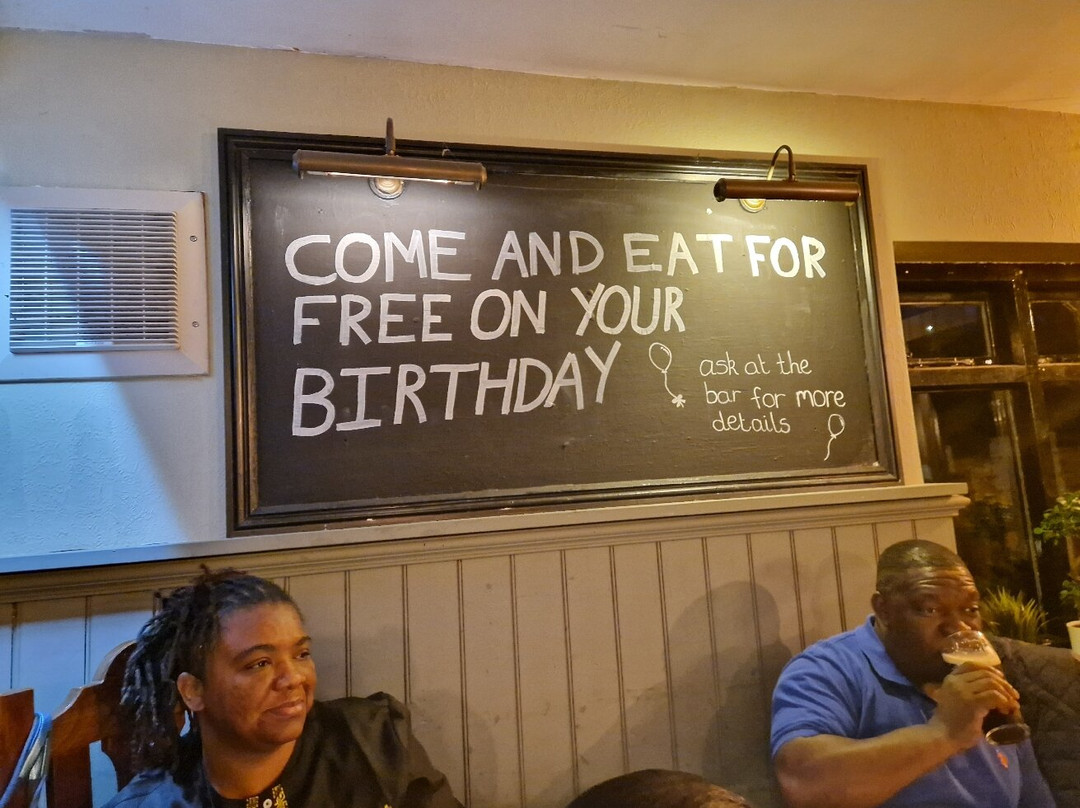 COME AND EAT FOR
FREE ON YOUR
BIRTHDAY
ask at the
bar for more
details